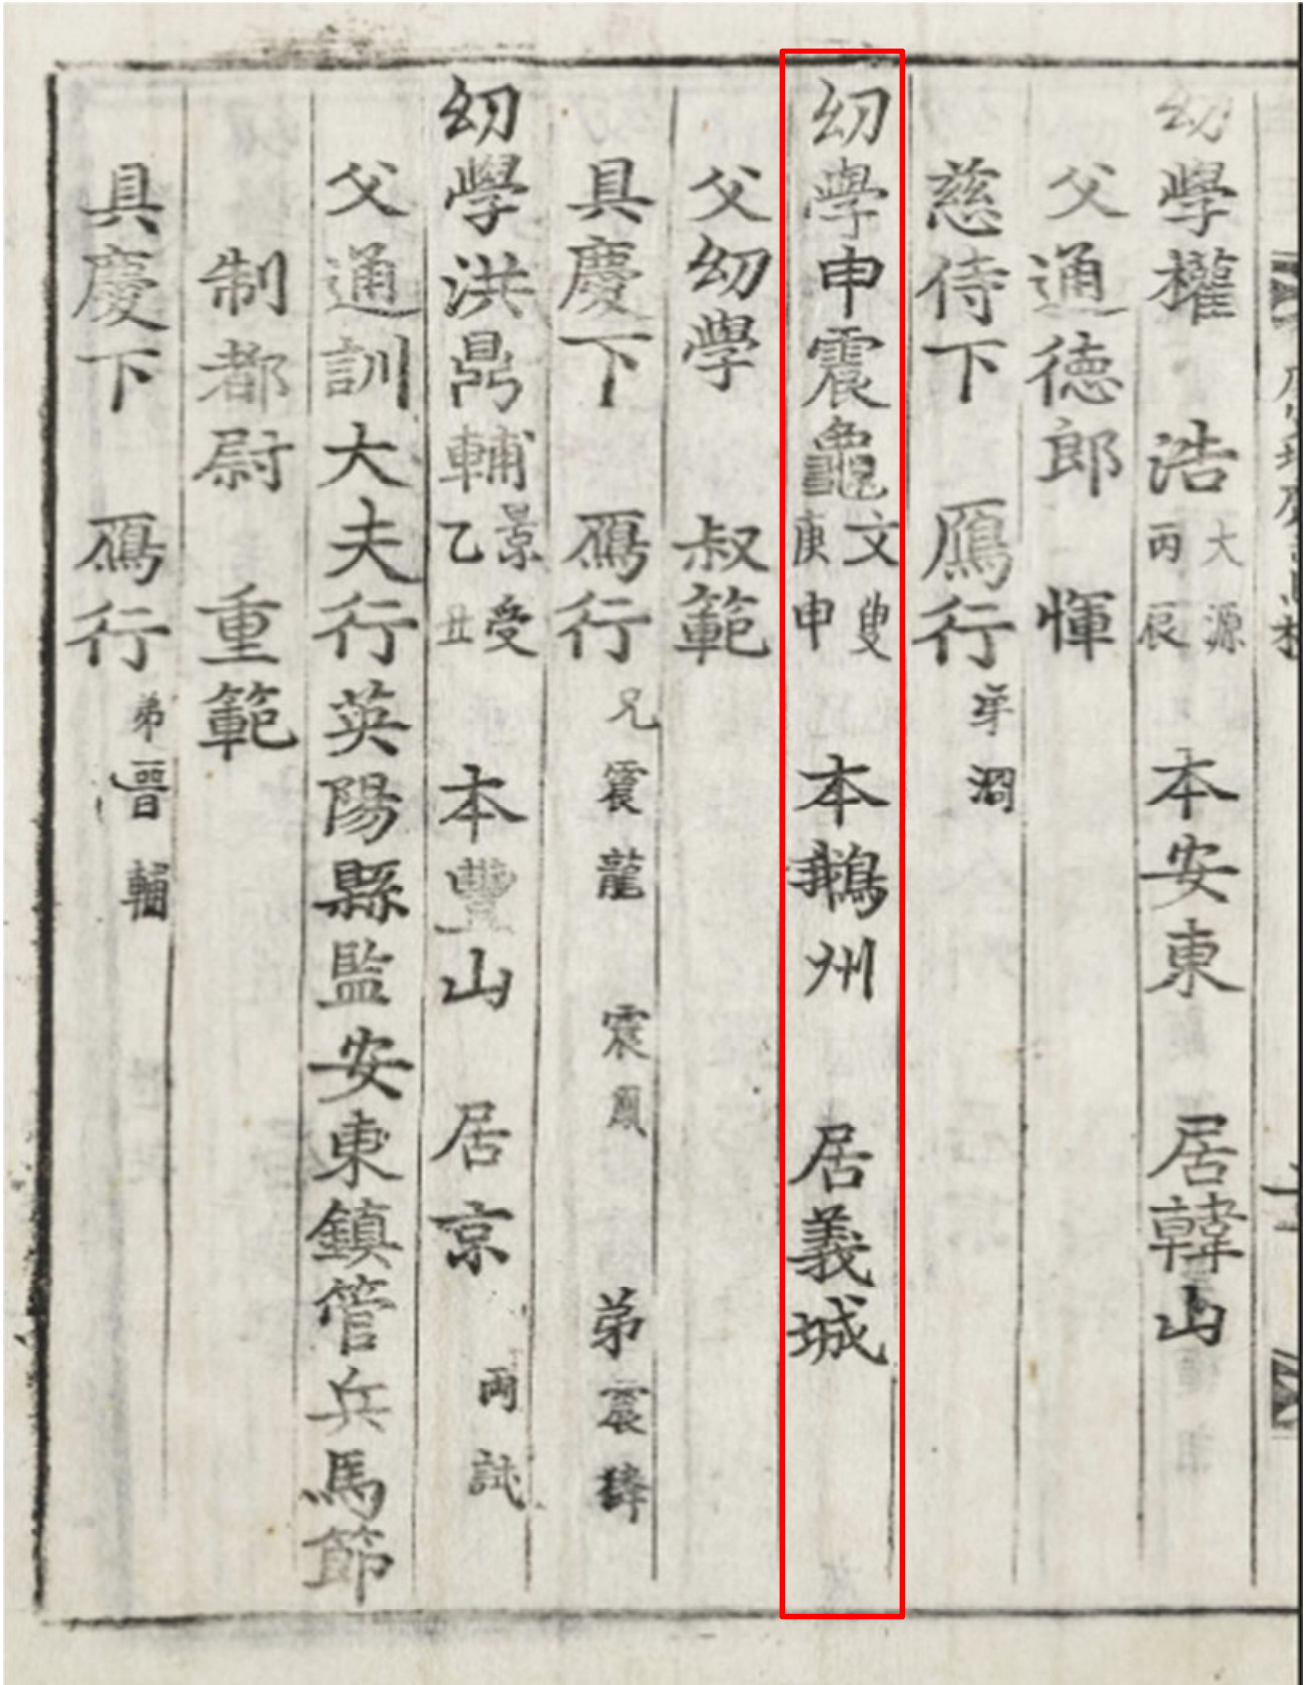 幼學權 浩 大源 丙辰 本安東 居韓山
父通德郎 惲
慈侍下 鴈行 弟
幼學申震龜 文叟 庚申 本鵝州 居義城
父幼學 叔範
具慶下 鴈行 兄震龍 震鳳 弟震
幼學洪鼎輔 景受 乙丑 本豐山 居京 兩試
父通訓大夫行英陽縣監安東鎮管兵馬節
制都尉 重範
具慶下 鴈行 弟晉輔